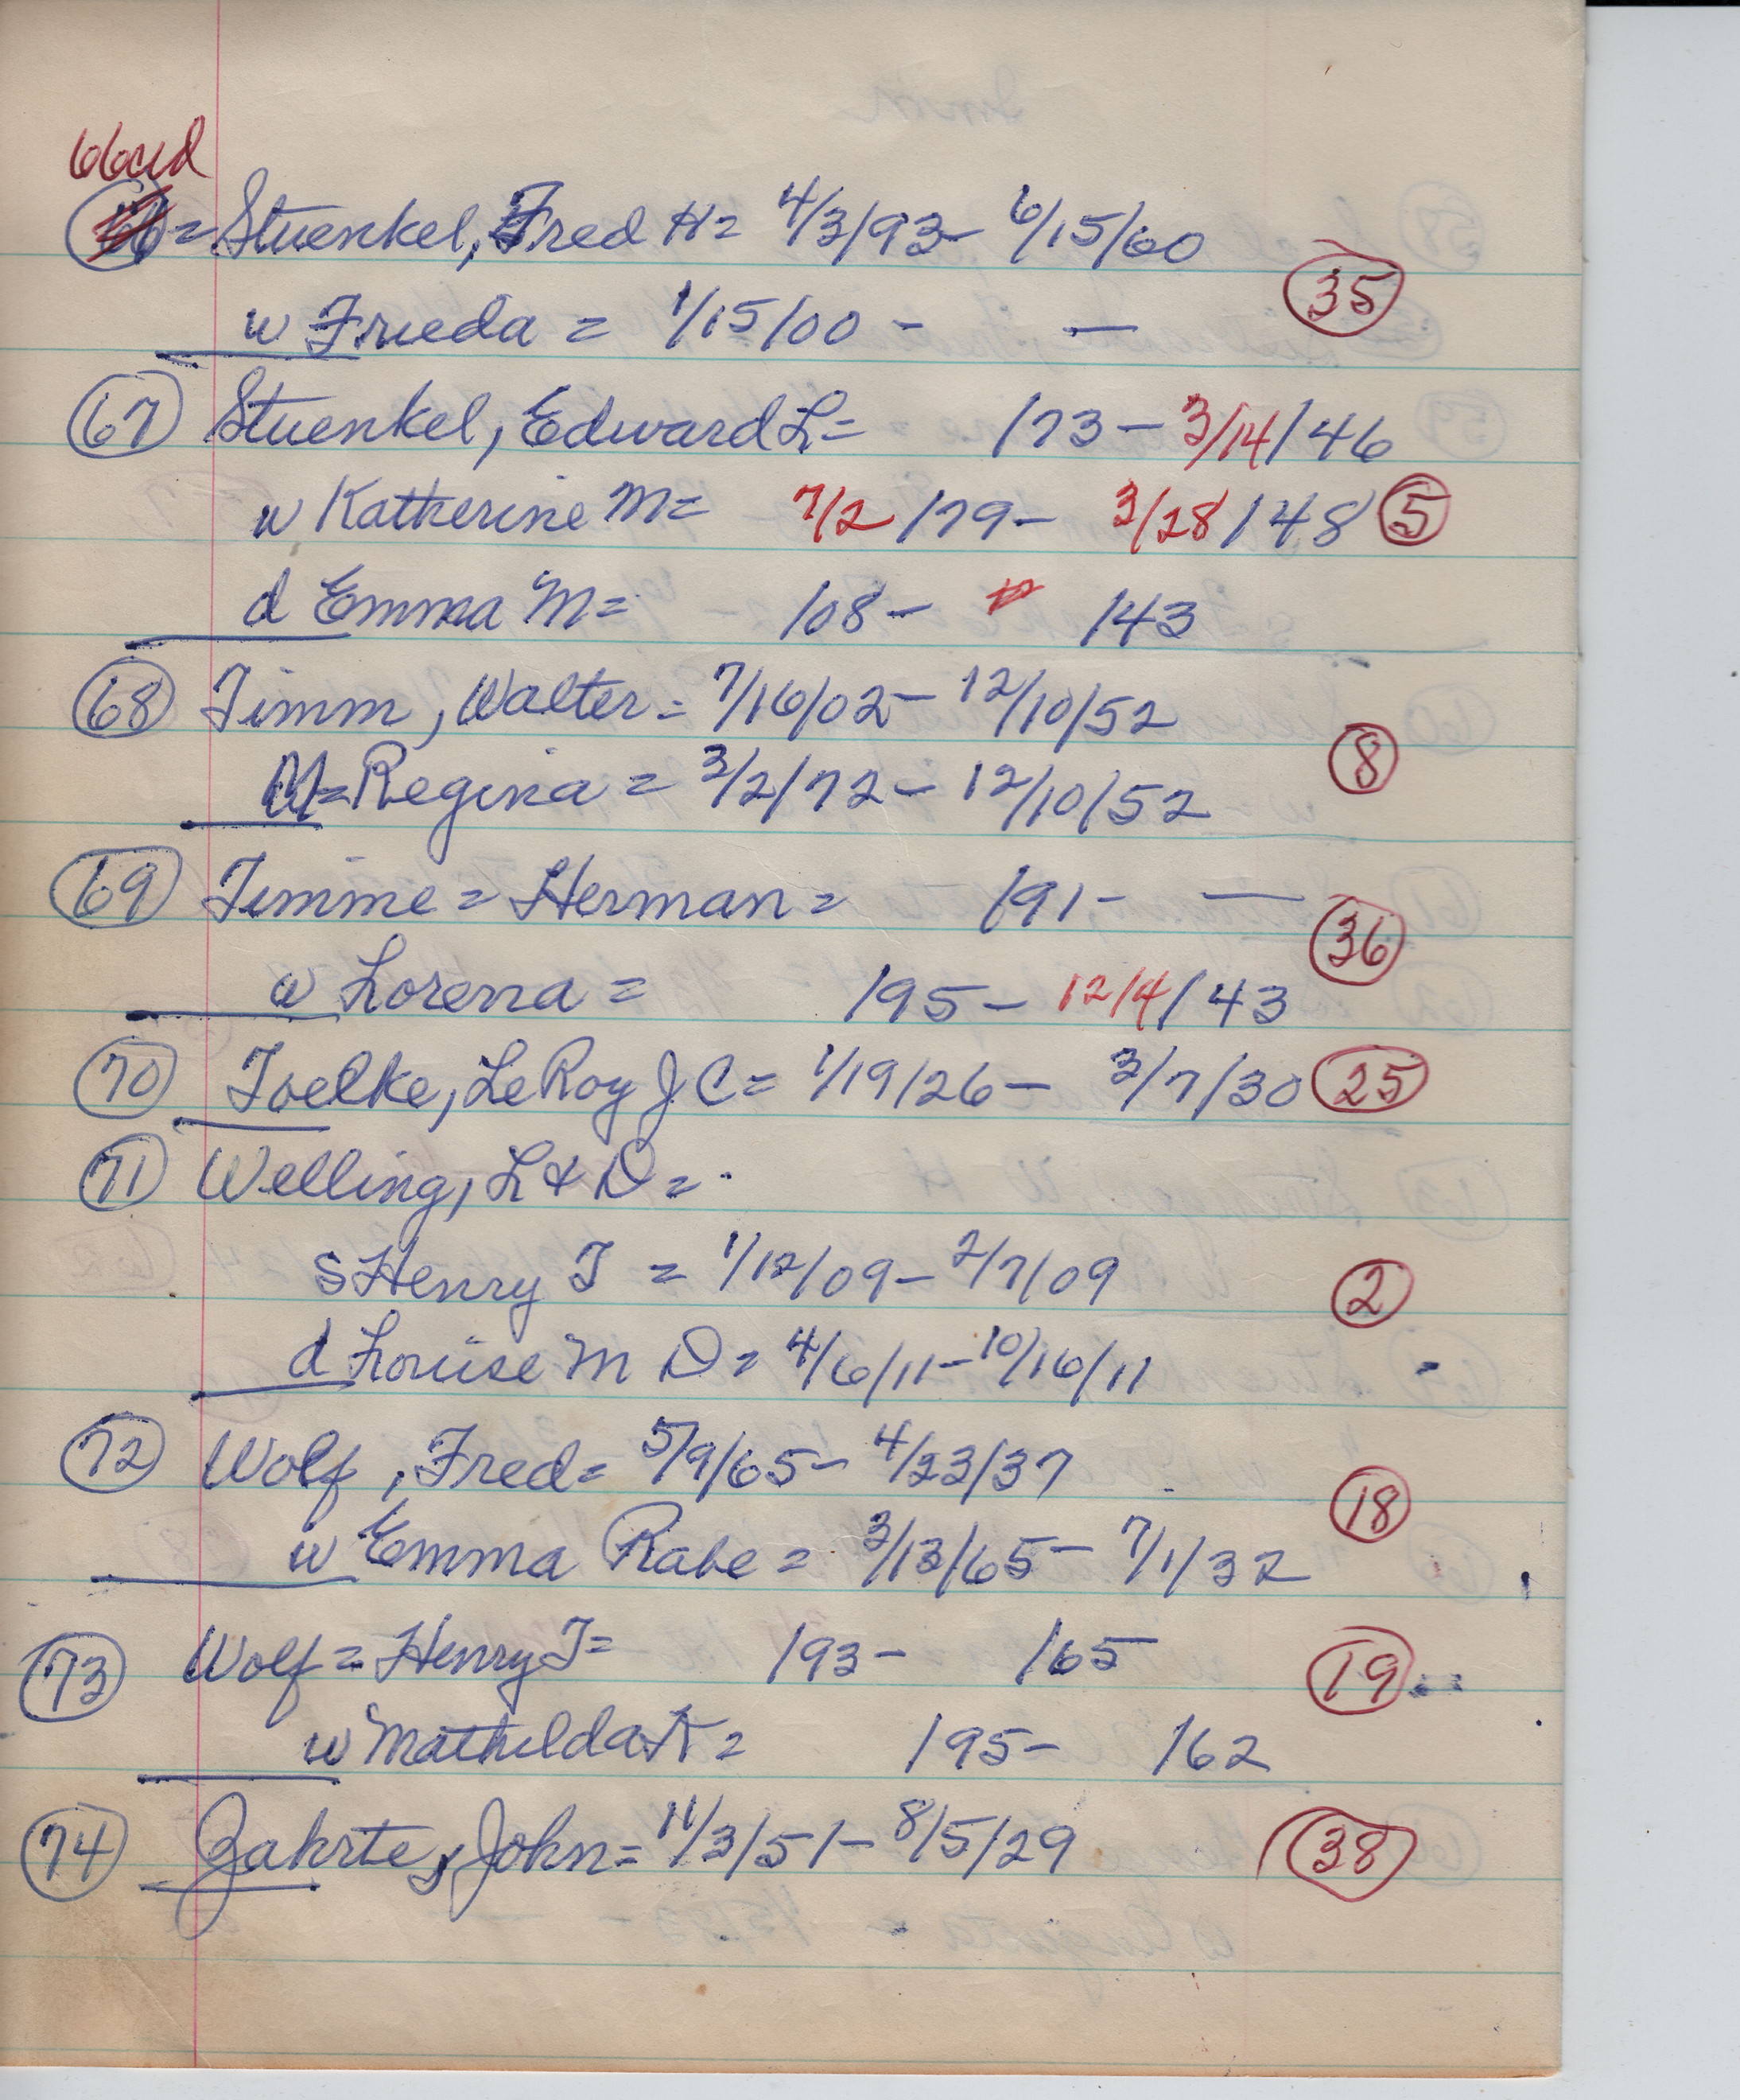 66
= Stuenkel, Fred H = 4/3/93 - 6/15/60
35
w Frieda = 1/15/00 - —
67 Stuenkel, Edward L = /73 - 3/14/46
w Katherine M = 7/2/79 - 3/28/48 5
d Emma M = /08 - /43
68 Timm, Walter = 7/16/02 - 12/10/52
8
= Regina = 3/2/72 - 12/10/52
69 Timme = Herman = /91 - —
36
w Lorena = /95 - 12/4/43
70 Toelke, LeRoy J C = 1/19/26 - 3/7/30 25
71 Welling, L & D =
s Henry T = 1/12/09 - 2/7/09 2
d Louise M D = 4/6/11 - 10/16/11
72 Wolf, Fred = 5/9/65 - 4/23/37
18
w Emma Rabe = 3/13/65 - 7/1/32
73 Wolf = Henry T = /93 - /65 19
w Mathilda A = /95 - /62
74 Zahrte, John = 11/3/51 - 8/5/29 38